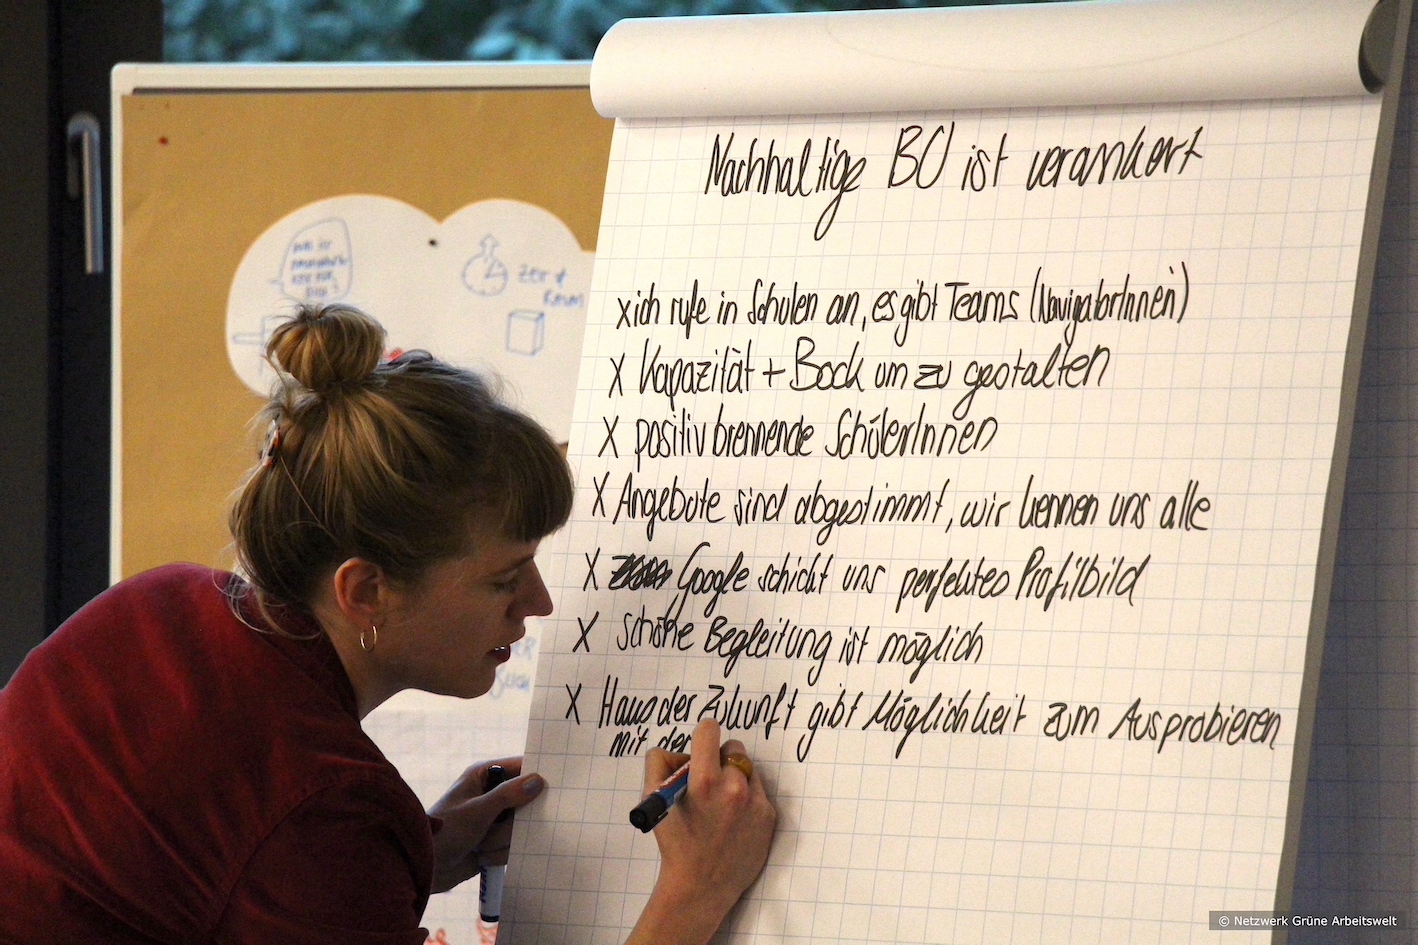 Nachhaltige BO ist verankert
x ich rufe in Schulen an, es gibt Teams (NavigatorInnen)
x Kapazität + Bock um zu gestalten
x positiv brennende SchülerInnen
x Angebote sind abgestimmt, wir kennen uns alle
x Google schickt uns perfektes Profilbild
x schöne Begleitung ist möglich
x Haus der Zukunft gibt Möglichkeit zum Ausprobieren
mit der
WAS IST
ZEIT &
RAUM
© Netzwerk Grüne Arbeitswelt